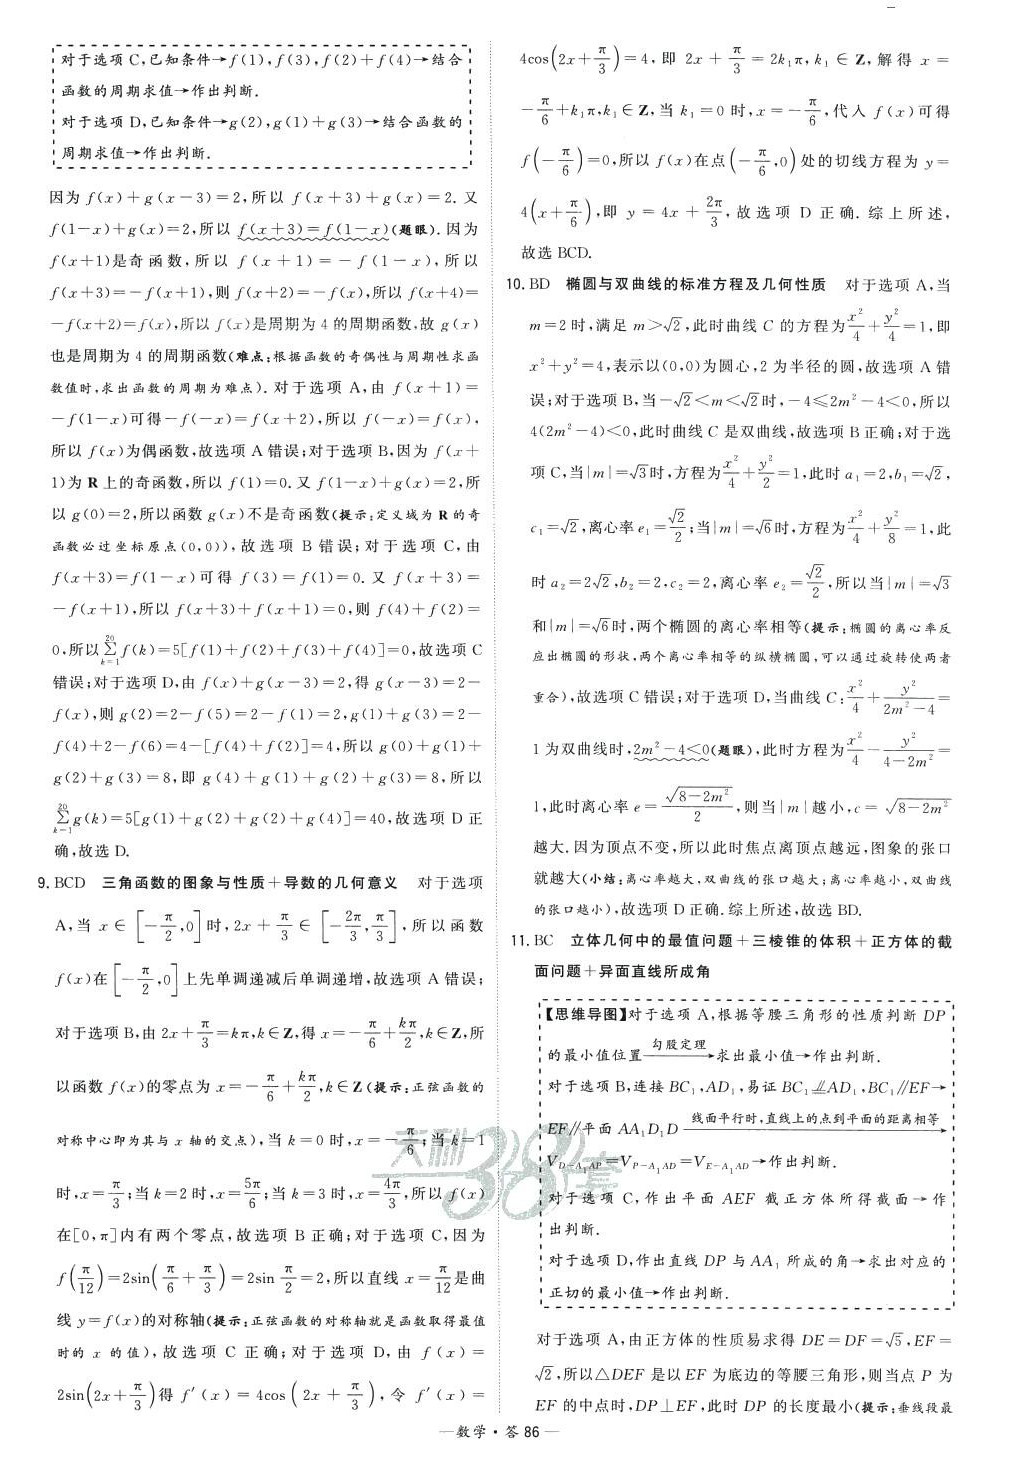 对于选项 C,已知条件→f(1),f(3),f(2)+f(4)→结合
函数的周期求值→作出判断.
对于选项 D,已知条件→g(2),g(1)+g(3)→结合函数的
周期求值→作出判断.
因为 f(x)+g(x-3)=2,所以 f(x+3)+g(x)=2. 又
f(1-x)+g(x)=2,所以 f(x+3)=f(1-x)(题眼). 因为
f(x+1)是奇函数,所以 f(x+1)=-f(1-x),所以
f(x+3)=-f(x+1),则 f(x+2)=-f(x),所以 f(x+4)=
-f(x+2)=f(x),所以 f(x)是周期为 4 的周期函数,故 g(x)
也是周期为 4 的周期函数(难点:根据函数的奇偶性与周期性求函
数值时,求出函数的周期为难点). 对于选项 A,由 f(x+1)=
-f(1-x)可得-f(-x)=f(x+2),所以 f(-x)=f(x),
所以 f(x)为偶函数,故选项 A 错误;对于选项 B,因为 f(x+
1)为 R 上的奇函数,所以 f(1)=0. 又 f(1-x)+g(x)=2,所
以 g(0)=2,所以函数 g(x)不是奇函数(提示:定义域为 R 的奇
函数必过坐标原点(0,0)),故选项 B 错误;对于选项 C,由
f(x+3)=f(1-x)可得 f(3)=f(1)=0. 又 f(x+3)=
-f(x+1),所以 f(x+3)+f(x+1)=0,则 f(4)+f(2)=
0,所以∑_{k=1}^{20} f(k)=5[f(1)+f(2)+f(3)+f(4)]=0,故选项 C
错误;对于选项 D,由 f(x)+g(x-3)=2,得 g(x-3)=2-
f(x),则 g(2)=2-f(5)=2-f(1)=2,g(1)+g(3)=2-
f(4)+2-f(6)=4-[f(4)+f(2)]=4,所以 g(0)+g(1)+
g(2)+g(3)=8,即 g(4)+g(1)+g(2)+g(3)=8,所以
∑_{k=1}^{20} g(k)=5[g(1)+g(2)+g(2)+g(4)]=40,故选项 D 正
确,故选 D.
9. BCD 三角函数的图象与性质+导数的几何意义 对于选项
A,当 x∈[-π/2,0]时,2x+π/3∈[-2π/3,π/3],所以函数
f(x)在[-π/2,0]上先单调递减后单调递增,故选项 A 错误;
对于选项 B,由 2x+π/3=kπ,k∈Z,得 x=-π/6+kπ/2,k∈Z,所
以函数 f(x)的零点为 x=-π/6+kπ/2,k∈Z(提示:正弦函数的
对称中心即为其与 x 轴的交点),当 k=0 时,x=-π/6;当 k=1
时,x=π/3;当 k=2 时,x=5π/6;当 k=3 时,x=4π/3,所以 f(x)
在[0,π]内有两个零点,故选项 B 正确;对于选项 C,因为
f(π/12)=2sin(π/6+π/3)=2sin π/2=2,所以直线 x=π/12是曲
线 y=f(x)的对称轴(提示:正弦函数的对称轴就是函数取得最值
时的 x 的值),故选项 C 正确;对于选项 D,由 f(x)=
2sin(2x+π/3)得 f′(x)=4cos(2x+π/3),令 f′(x)=
4cos(2x+π/3)=4,即 2x+π/3=2k₁π,k₁∈Z,解得 x=
-π/6+k₁π,k₁∈Z,当 k₁=0 时,x=-π/6,代入 f(x)可得
f(-π/6)=0,所以 f(x)在点(-π/6,0)处的切线方程为 y=
4(x+π/6),即 y=4x+2π/3,故选项 D 正确. 综上所述,
故选 BCD.
10. BD 椭圆与双曲线的标准方程及几何性质 对于选项 A,当
m=2 时,满足 m>√2,此时曲线 C 的方程为x²/4+y²/4=1,即
x²+y²=4,表示以(0,0)为圆心,2 为半径的圆,故选项 A 错
误;对于选项 B,当-√2<m<√2时,-4≤2m²-4<0,所以
4(2m²-4)<0,此时曲线 C 是双曲线,故选项 B 正确;对于选
项 C,当|m|=√3时,方程为x²/4+y²/2=1,此时 a₁=2,b₁=√2,
c₁=√2,离心率 e₁=√2/2;当|m|=√6时,方程为x²/4+y²/8=1,此
时 a₂=2√2,b₂=2,c₂=2,离心率 e₂=√2/2,所以当|m|=√3
和|m|=√6时,两个椭圆的离心率相等(提示:椭圆的离心率反
应出椭圆的形状,两个离心率相等的纵横椭圆,可以通过旋转使两者
重合),故选项 C 错误;对于选项 D,当曲线 C:x²/4+y²/(2m²-4)=
1 为双曲线时,2m²-4<0(题眼),此时方程为x²/4-y²/(4-2m²)=
1,此时离心率 e=√(8-2m²)/2,则当|m|越小,c=√(8-2m²)
越大. 因为顶点不变,所以此时焦点离顶点越远,图象的张口
就越大(小结:离心率越大,双曲线的张口越大;离心率越小,双曲线
的张口越小),故选项 D 正确. 综上所述,故选 BD.
11. BC 立体几何中的最值问题+三棱锥的体积+正方体的截
面问题+异面直线所成角
【思维导图】对于选项 A,根据等腰三角形的性质判断 DP
的最小值位置 勾股定理→求出最小值→作出判断.
对于选项 B,连接 BC₁,AD₁,易证 BC₁⫽AD₁,BC₁//EF→
EF//平面 AA₁D₁D 线面平行时,直线上的点到平面的距离相等→
V_{D-A₁AP}=V_{P-A₁AD}=V_{E-A₁AD}→作出判断.
对于选项 C,作出平面 AEF 截正方体所得截面→作
出判断.
对于选项 D,作出直线 DP 与 AA₁ 所成的角→求出对应的
正切的最小值→作出判断.
对于选项 A,由正方体的性质易求得 DE=DF=√5,EF=
√2,所以△DEF 是以 EF 为底边的等腰三角形,则当点 P 为
EF 的中点时,DP⊥EF,此时 DP 的长度最小(提示:垂线段最
天利38套
—数学·答 86—